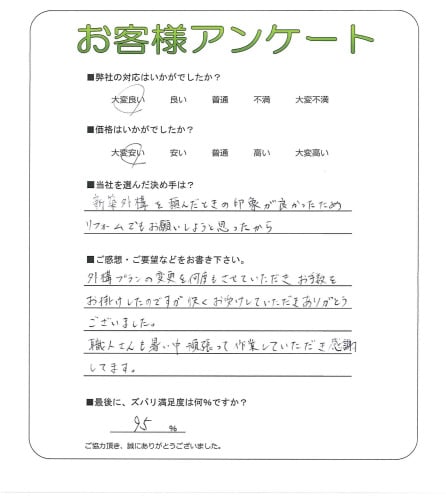 お客様アンケート
■弊社の対応はいかがでしたか？
大変良い 良い 普通 不満 大変不満
■価格はいかがでしたか？
大変安い 安い 普通 高い 大変高い
■当社を選んだ決め手は？
新築外構を頼んだときの印象が良かったため
リフォームでもお願いしようと思ったから
■ご感想・ご要望などをお書き下さい。
外構プランの変更を何度もさせていただき お手数を
お掛けしたのですが快くお受けしていただきありがとう
ございました。
職人さんも暑い中頑張って作業していただき感謝
してます。
■最後に、ズバリ満足度は何%ですか？
95 %
ご協力頂き、誠にありがとうございました。